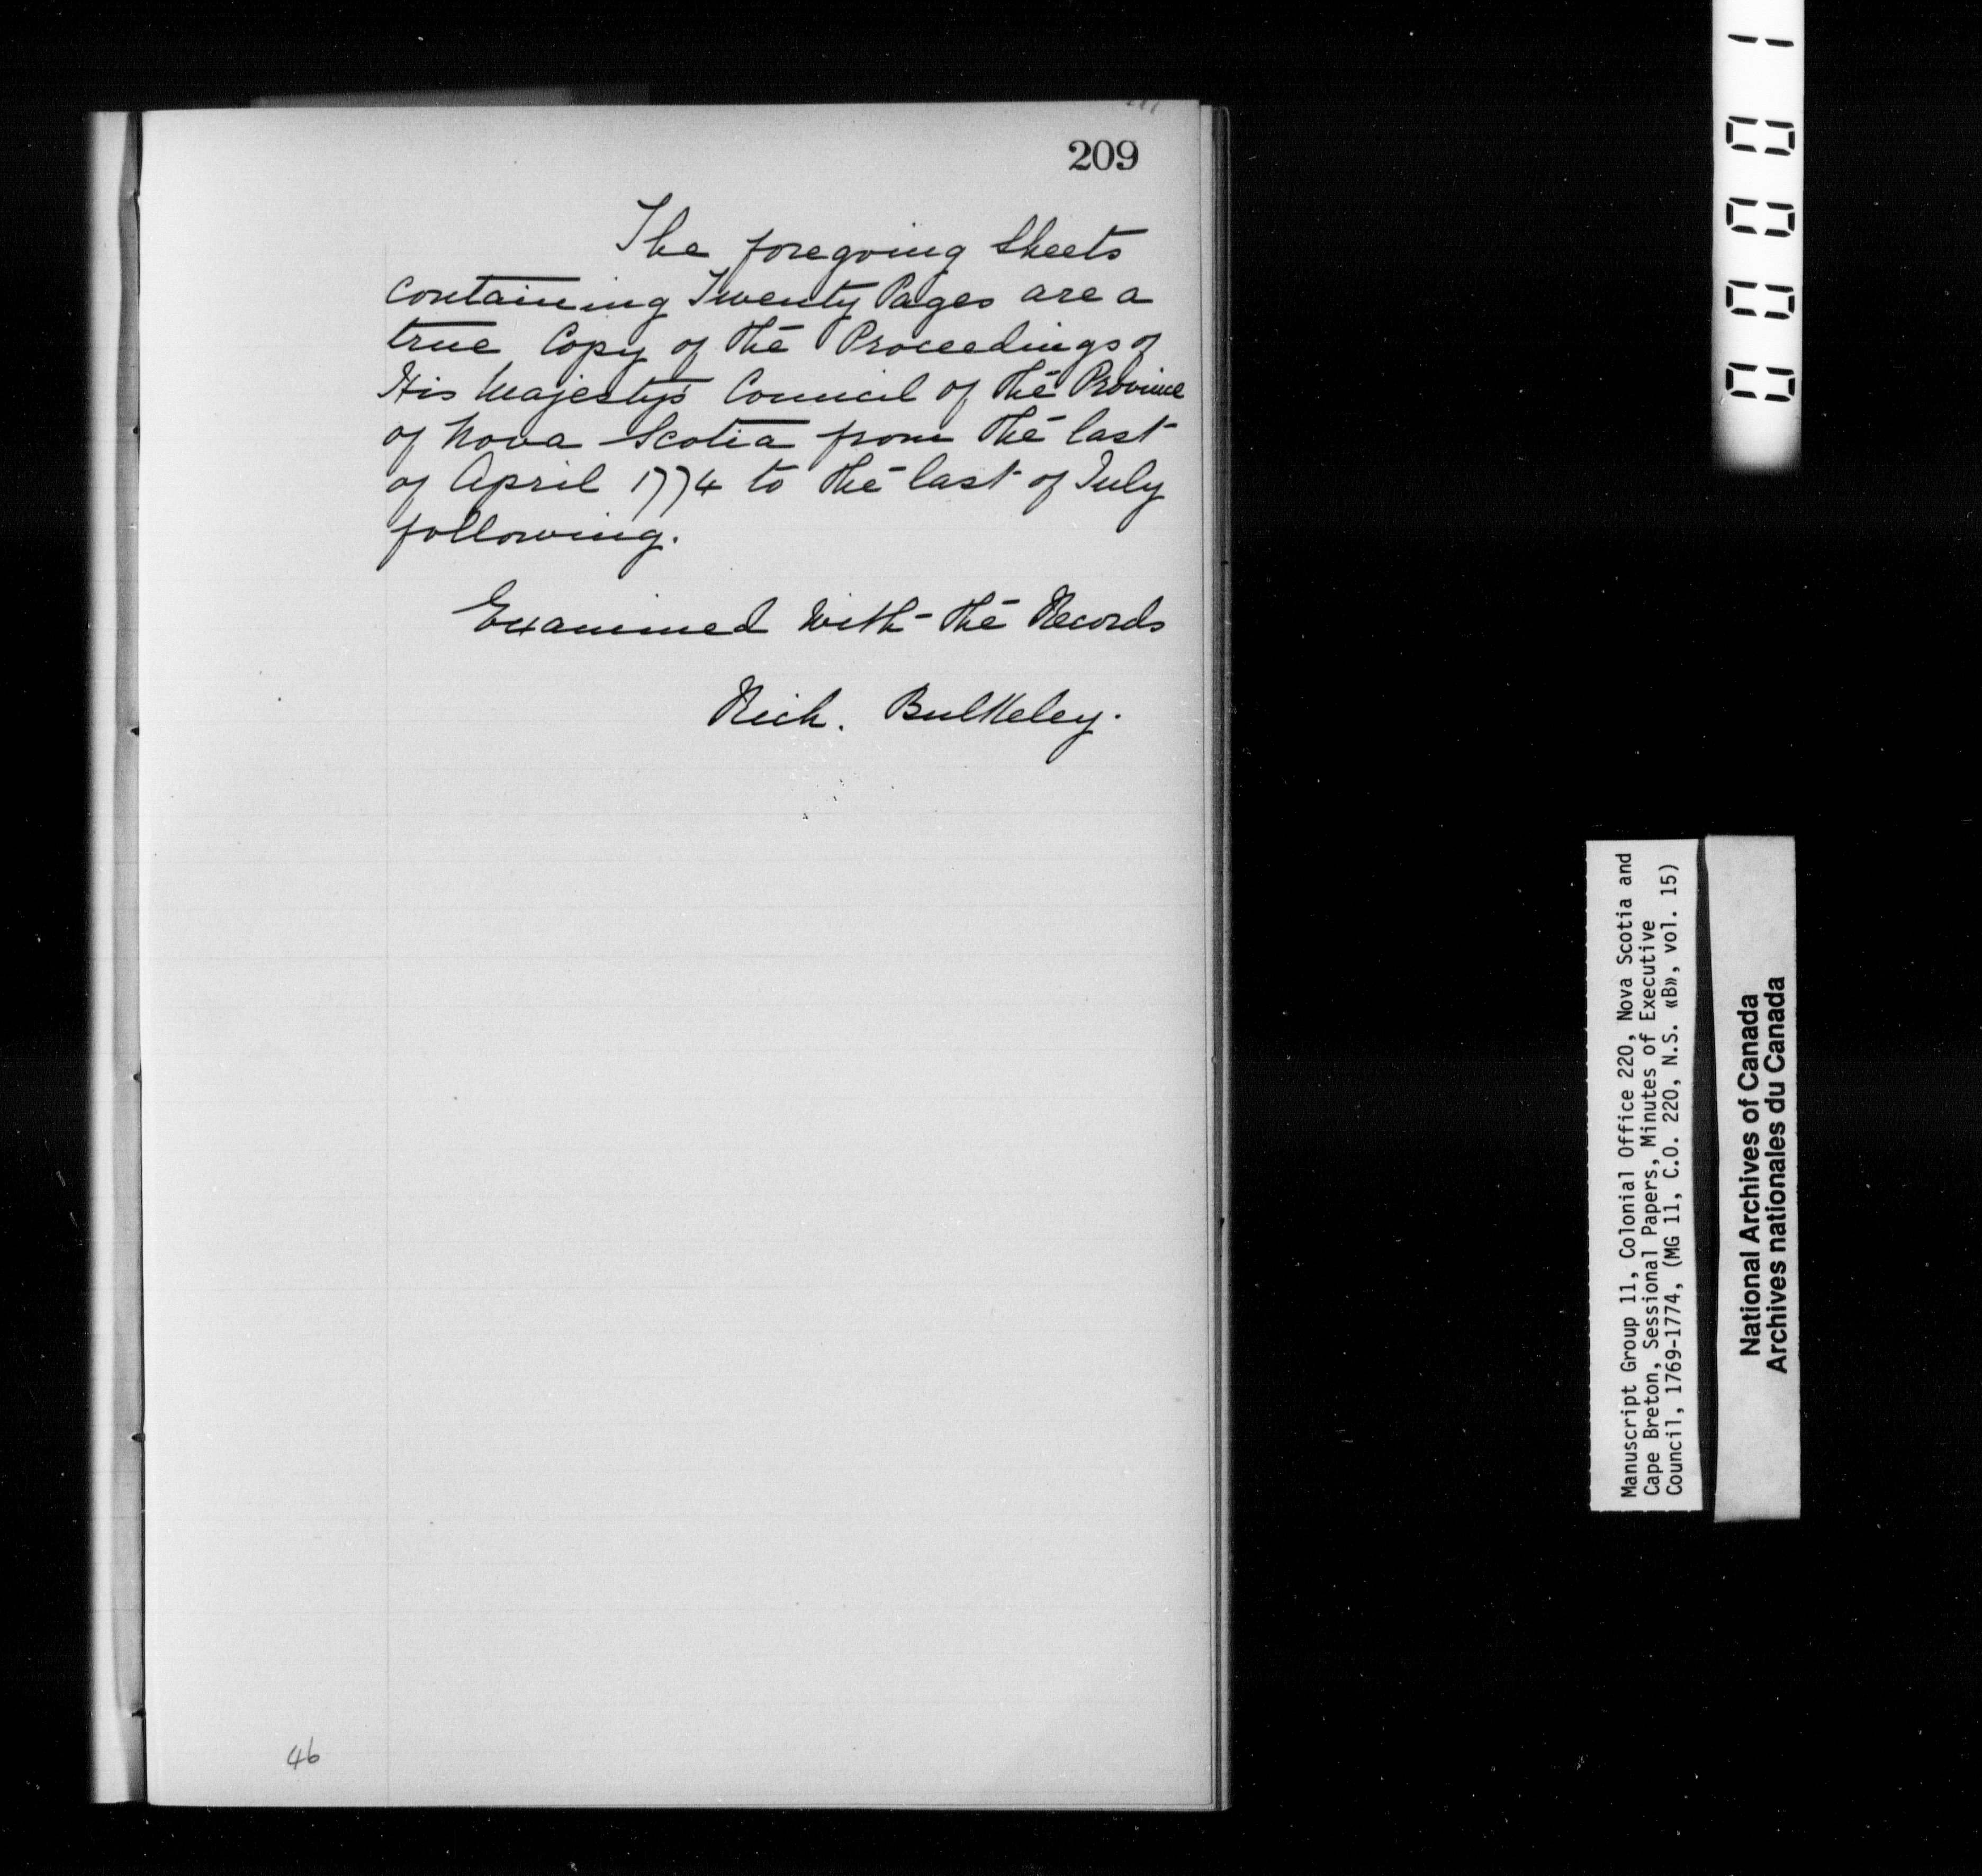 209
The foregoing Sheets
containing Twenty Pages are a
true Copy of the Proceedings of
His Majesty's Council of the Province
of Nova Scotia from the last
of April 1774 to the last of July
following.
Examined with the Records
Rich. Bulkeley.
46
00001
Manuscript Group 11, Colonial Office 220, Nova Scotia and
Cape Breton, Sessional Papers, Minutes of Executive
Council, 1769-1774, (MG 11, C.O. 220, N.S. «B», vol. 15)
National Archives of Canada
Archives nationales du Canada